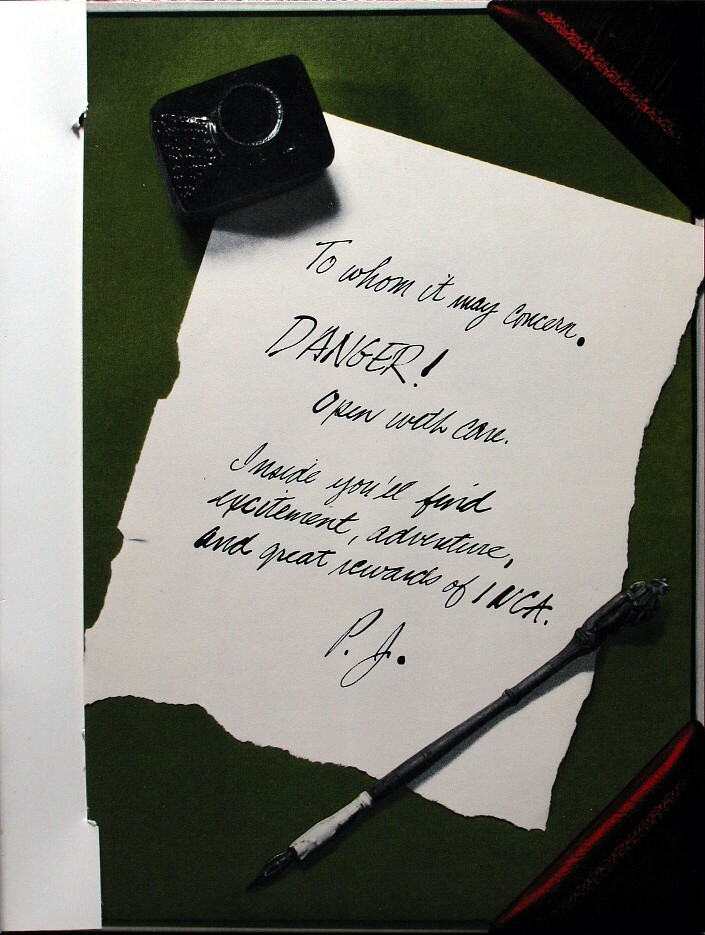 To whom it may concern.
DANGER!
Open with care.
Inside you'll find
excitement, adventure,
and great rewards of INCA.
P. J.